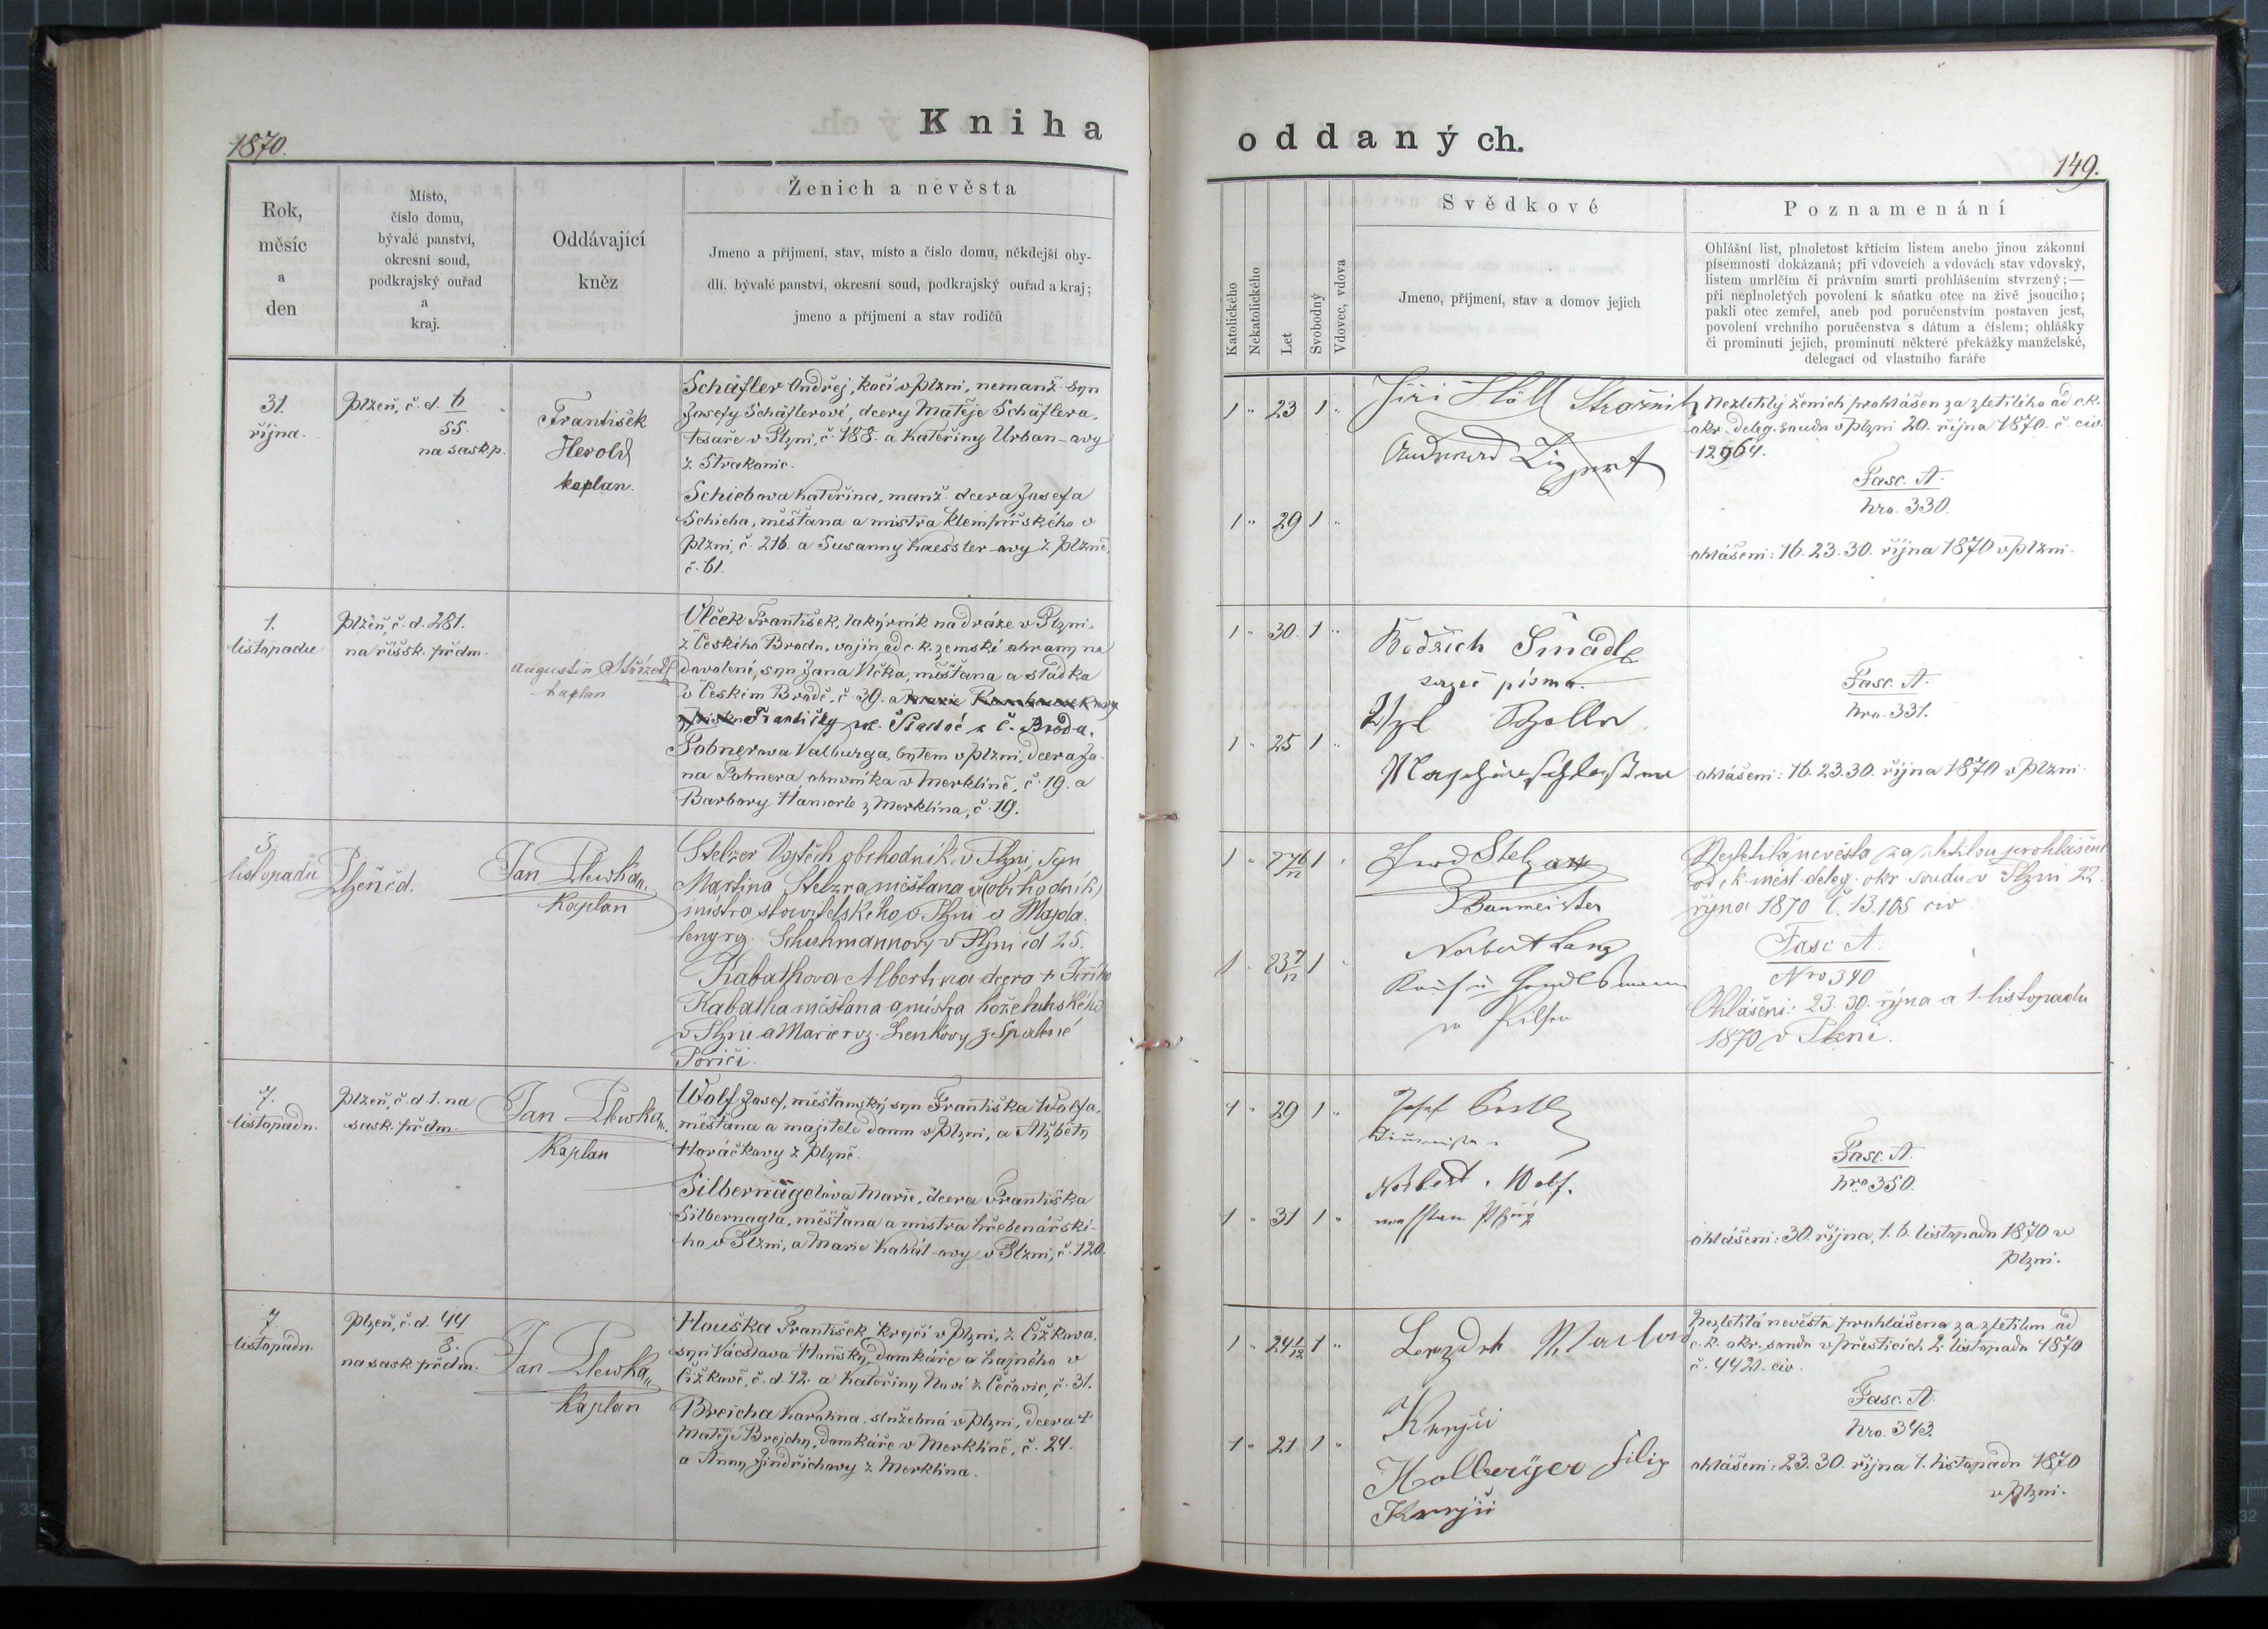 1870.
Kniha
oddaných.
149.
Rok,
měsíc
a
den
Místo,
číslo domu,
bývalé panství,
okresní soud,
podkrajský ouřad
a
kraj.
Oddávající
kněz
Ženich a nevěsta
Jmeno a příjmení, stav, místo a číslo domu, někdejší oby-
dlí, bývalé panství, okresní soud, podkrajský ouřad a kraj;
jmeno a příjmení a stav rodičů
Katolického
Nekatolického
Let
Svobodný
Vdovec, vdova
Svědkové
Jmeno, příjmení, stav a domov jejich
Poznamenání
Ohlášní list, plnoletost křticím listem anebo jinou zákonní
písemností dokázaná; při vdovcích a vdovách stav vdovský,
listem umrlčím či právním smrti prohlášením stvrzený;—
při neplnoletých povolení k sňatku otce na živě jsoucího;
pakli otec zemřel, aneb pod poručenstvím postaven jest,
povolení vrchního poručenstva s dátum a číslem; ohlášky
či prominutí jejich, prominutí některé překážky manželské,
delegací od vlastního faráře
31.
října.
Plzeň, č. d. 6
55.
na sask. p.
František
Herold
kaplan.
Schäfler Ondřej, kočí v Plzni, nemanž. syn
Josefy Schäflerové, dcery Matěje Schäflera,
tesaře v Plzni, č. 188. a Kateřiny Urban-ovy
z Strakonic.
Schiebova Kateřina, manž. dcera Josefa
Schieba, měšťana a mistra klempířského v
Plzni, č. 216. a Susanny Haessler-ovy z Plzně,
č. 61.
1 " 23 1 "
1 " 29 1 "
Jiří Höll
Nezletilý ženich prohlášen za zletilého od c.k.
okr. deleg. soudu v Plzni 20. října 1870. č. civ.
12964.
Fasc. A.
Nro. 330.
ohlášeni: 16. 23. 30. října 1870 v Plzni.
1.
listopadu
Plzeň, č. d. 281.
na říšsk. předm.
Augustin
kaplan
Vlček František, lakýrník na dráze v Plzni,
z Českého Brodu, vojín od c. k. zemské obrany na
dovolené, syn Jana Vlčka, měšťana a sládka
v Českém Brodě, č. 39. a
Františky z Č. Broda.
Pobnerova Valburga, bytem v Plzni, dcera Ja-
na Pobnera, obuvníka v Merklíně, č. 19. a
Barbory Hamerle z Merklína, č. 19.
1 " 30. 1 "
1 " 25 1 "
Bedřich Šmadl
sazeč písma.
Fasc. A.
Nro. 331.
ohlášeni: 16. 23. 30. října 1870 v Plzni.
5.
listopadu
Plzeň čd.
Jan Plewka
Kaplan
Stelzer Vojtěch obchodník v Plzni, syn
Martina Stelzra měšťana a (obchodník)
mistra stavitelského v Plzni a Magda-
leny roz. Schuhmannovy v Plzni čd 25.
Kabathova Albertina dcera + Jiřího
Kabatha měšťana a mistra koželuhského
v Plzni a Marie roz. Lenkovy z Spálené
Poříčí.
1 " 27 6/12 1 "
1 " 23 7/12 1 "
Baumeister
Norbert Lang
Nezletilá nevěsta za zletilou prohlášena
od c k. měst. deleg. okr. soudu v Plzni 22.
října 1870 č. 13.105 civ
Fasc A.
Nro 340
Ohlášeni: 23. 30. října a 1. listopadu
1870 v Plzni.
7.
listopadu.
Plzeň, č. d. 1. na
sask. předm.
Jan Plewka
Kaplan
Wolf Josef, měšťanský syn Františka Wolfa,
měšťana a majitele domu v Plzni, a Alžběty
Horáčkovy z Plzně.
Silbernäglova Marie, dcera Františka
Silbernagla, měšťana a mistra hřebenářské-
ho v Plzni, a Marie Kabát-ovy v Plzni, č. 120.
1 " 29 1 "
1 " 31 1 "
Norbert Wolf.
Fasc. A.
Nro 350.
ohlášeni: 30. října, 1. 6. listopadu 1870 v
Plzni.
7.
listopadu.
Plzeň, č. d. 44
8.
na sask. předm.
Jan Plewka
Kaplan
Houška František, krejčí v Plzni, z Čižkova,
syn Václava Houšky, domkáře a hajného v
Čižkově, č. d. 12. a Kateřiny Nové z Čečovic, č. 31.
Breicha Karolina, služebná v Plzni, dcera +
Matěje Brejchy, domkáře v Merklíně, č. 24.
a Anny Jindřichovy z Merklína.
1 " 24 1/12 1 "
1 " 21 1 "
Krejčí
Holberger Filip
Krejčí
Nezletilá nevěsta prohlášena za zletilou od
c. k. okr. soudu v Přešticích 2. listopadu 1870
č. 4421. civ.
Fasc. A.
Nro. 343.
ohlášeni: 23. 30. října 1. listopadu 1870
v Plzni.